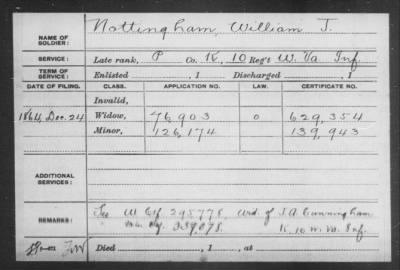 NAME OF SOLDIER: Nottingham, William J.
SERVICE: Late rank, P Co. K, 10 Reg't W. Va. Inf.
TERM OF SERVICE: Enlisted , 1 Discharged , 1
DATE OF FILING. CLASS. APPLICATION NO. LAW. CERTIFICATE NO.
Invalid,
1864, Dec. 24 Widow, 76,903 0 629,354
Minor, 126,174 139,943
ADDITIONAL SERVICES:
REMARKS: See W. Ctf. 295778, Wid. of J. A. Cunningham
339078. K, 10 W. Va. Inf.
Died , 1 , at